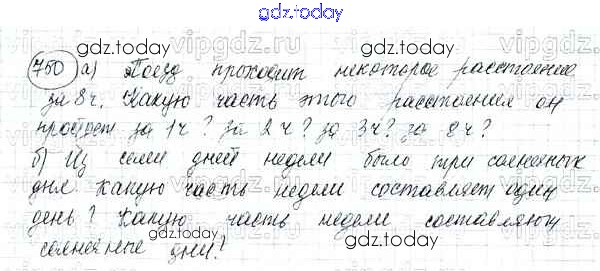 gdz.today
750 а) Поезд проходит некоторое расстояние
за 8ч. Какую часть этого расстояния он
пройдет за 1ч? за 2ч? за 3ч? за 8ч?
б) Из семи дней недели было три солнечных
дня. Какую часть недели составляет один
день? Какую часть недели составляют
солнечные дни?